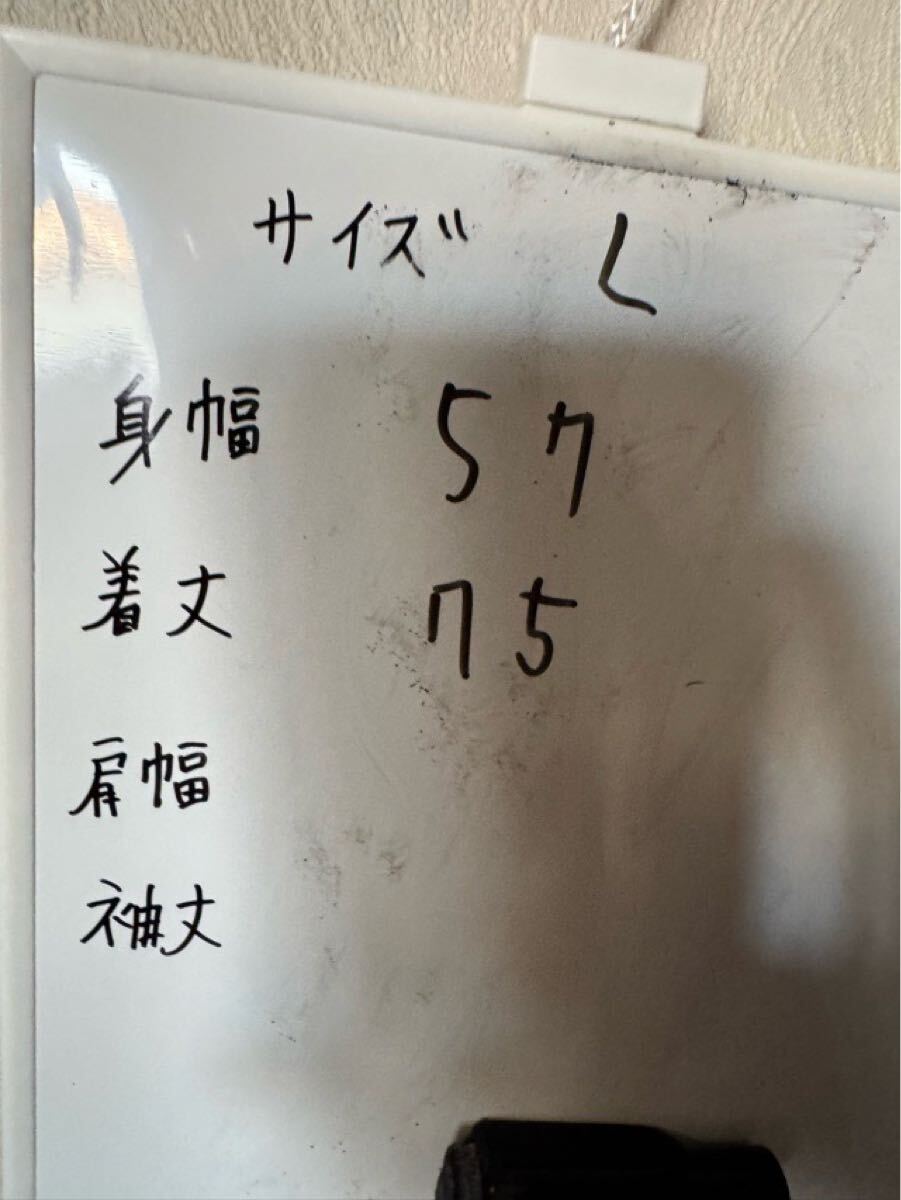 サイズ L
身幅 57
着丈 75
肩幅
袖丈